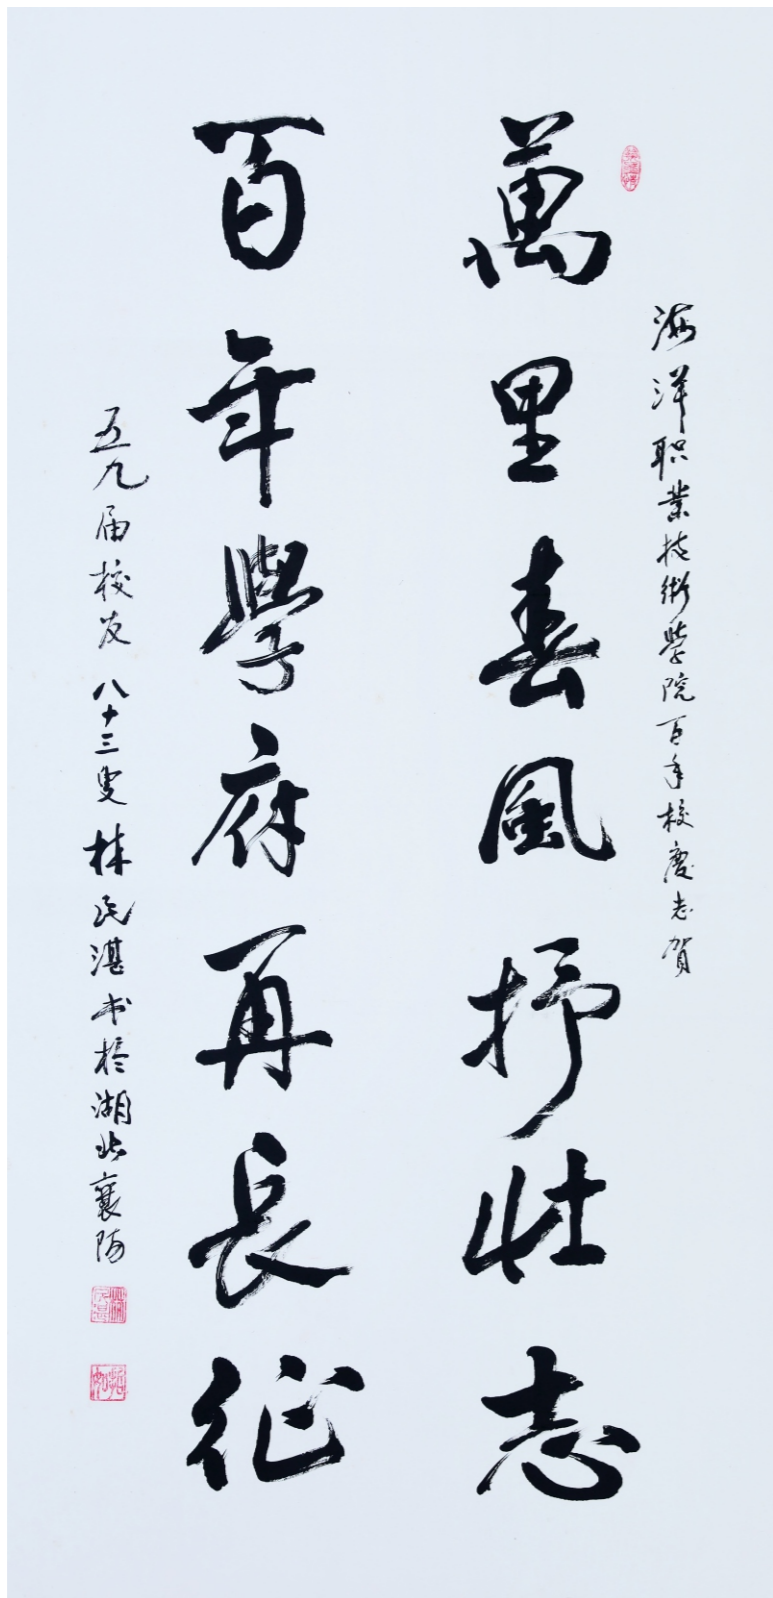 海洋职業技術學院百年校慶志贺
萬里春風抒壯志
百年學府再長征
五九届校友八十三叟林民湛书於湖北襄阳